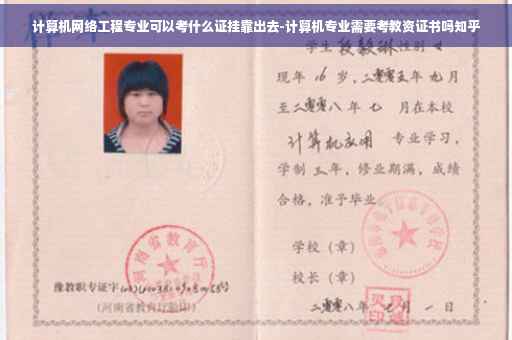 计算机网络工程专业可以考什么证挂靠出去-计算机专业需要考教资证书吗知乎
学生 段毅琳 性别 女
现年 16 岁，二零零五年 九月
至二零零八 年 七 月在本校
计算机应用 专业学习，
学制 三 年，修业期满，成绩
合格，准予毕业
学校（章）
河南省教育厅
校长（章）
豫教职专证字
（河南省教育厅验印）
二零零八年 七 月 一 日